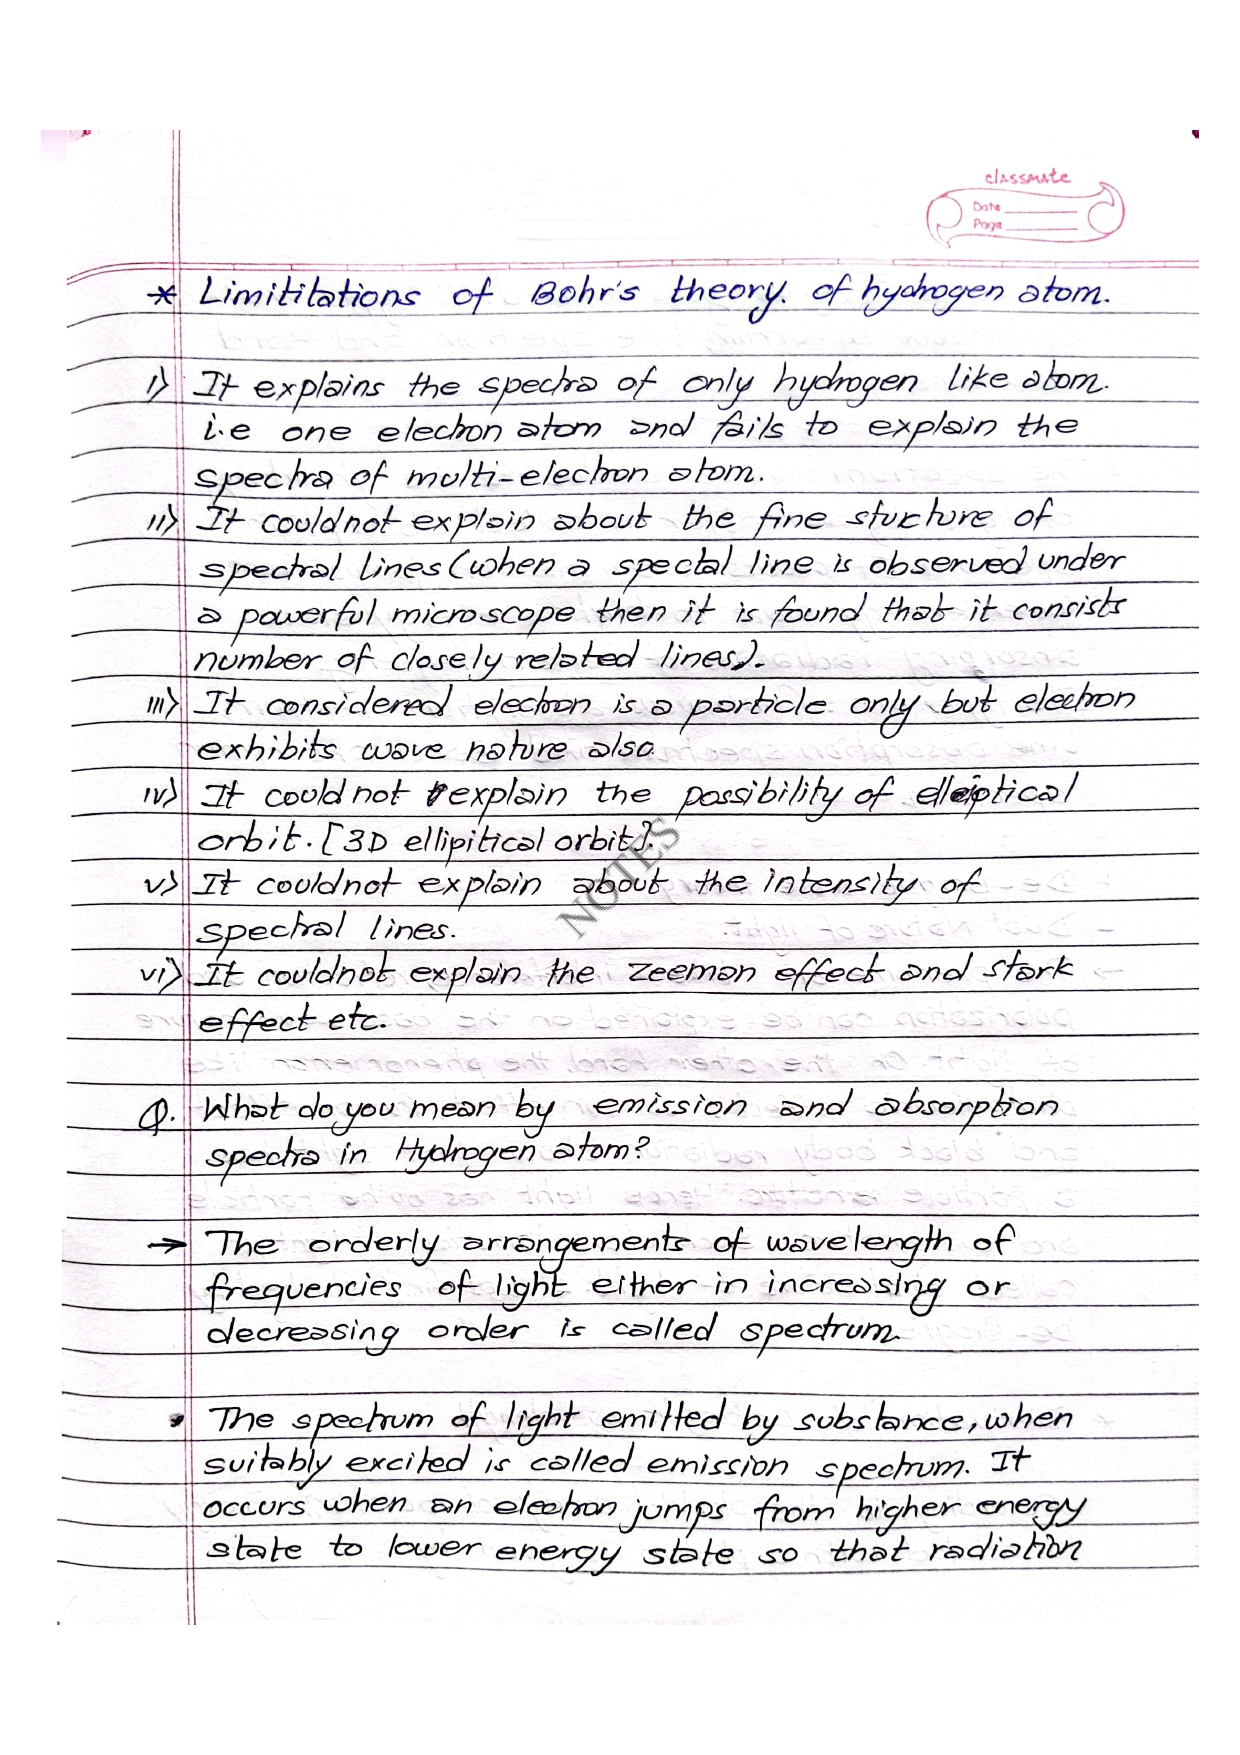 classmate
Date
Page
* Limititations of Bohr's theory. of hydrogen atom.
i) It explains the spectra of only hydrogen like atom.
i.e one electron atom and fails to explain the
spectra of multi-electron atom.
ii) It couldnot explain about the fine stucture of
spectral lines (when a spectal line is observed under
a powerful microscope then it is found that it consists
number of closely related lines).
iii) It considered electron is a particle only but electron
exhibits wave nature also.
iv) It could not explain the possibility of elleiptical
orbit. [3D ellipitical orbit].
v) It couldnot explain about the intensity of
spectral lines.
vi) It couldnot explain the zeeman effect and stark
effect etc.
NOTES
Q. What do you mean by emission and absorption
spectra in Hydrogen atom?
→ The orderly arrangements of wavelength of
frequencies of light either in increasing or
decreasing order is called spectrum.
• The spectrum of light emitted by substance, when
suitably excited is called emission spectrum. It
occurs when an electron jumps from higher energy
state to lower energy state so that radiation